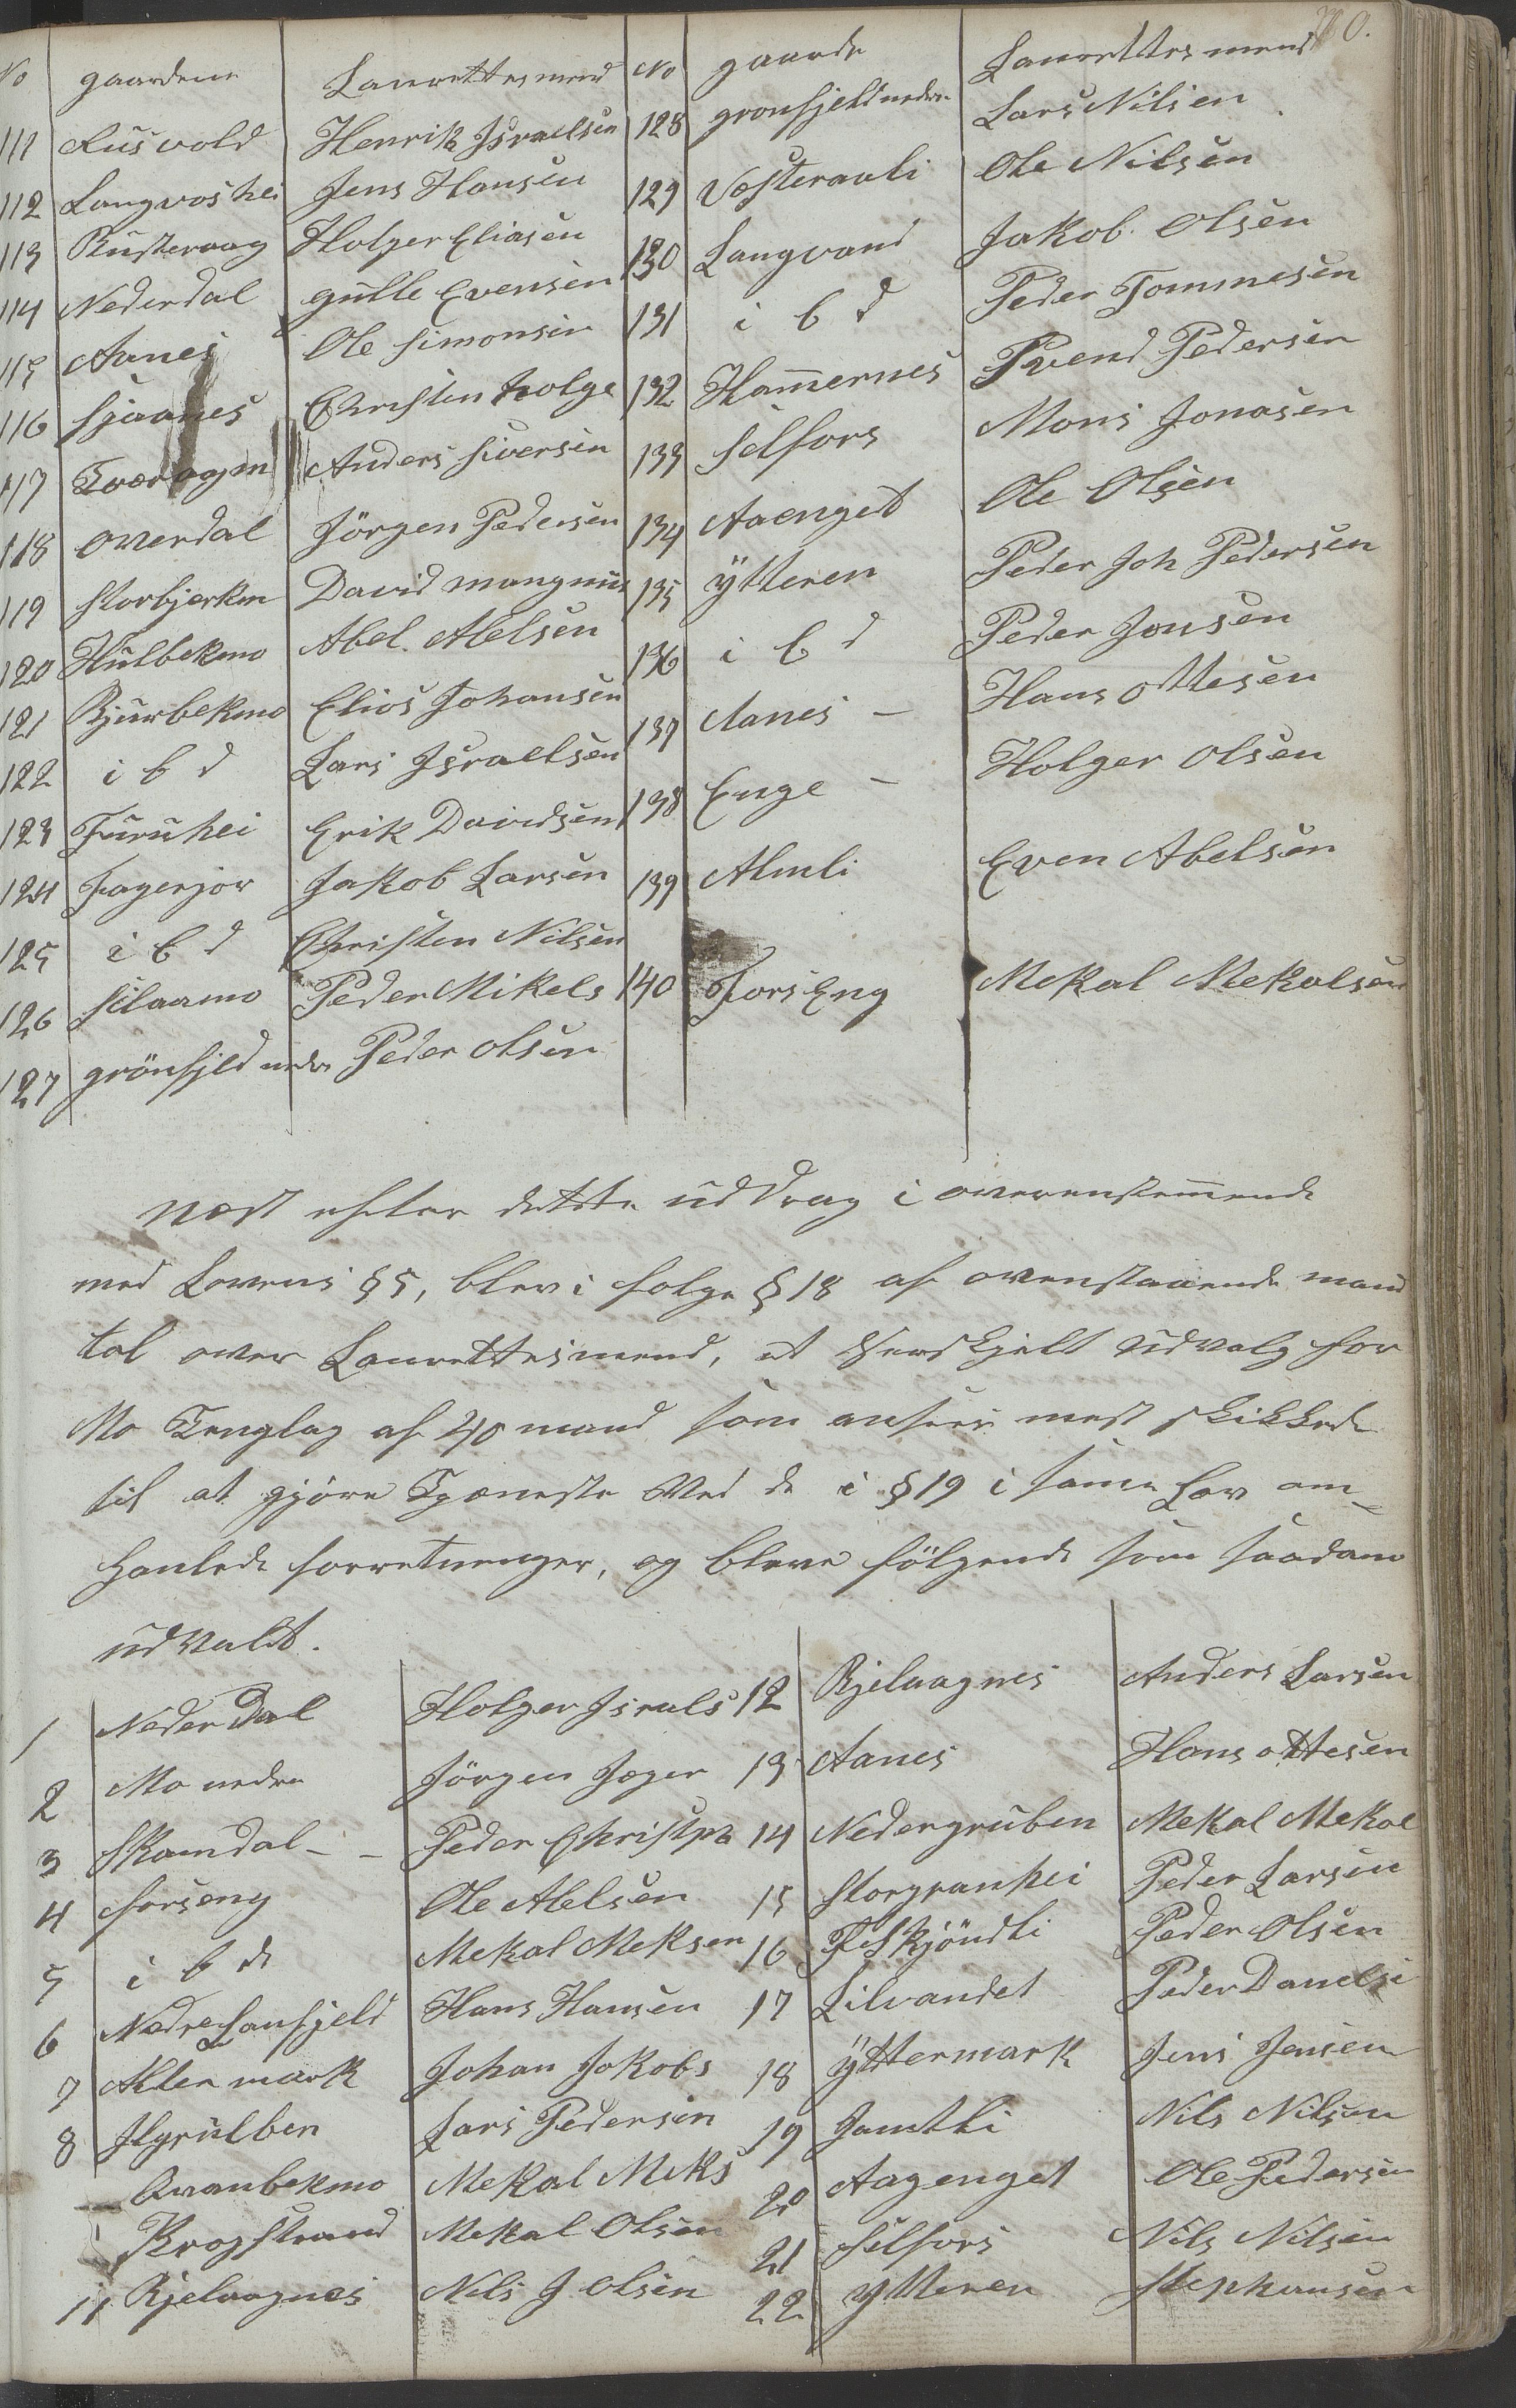 70.
No gaardene Laurettesmend No gaarde Laurettesmend
111 Rusvold Henrik Israelsen 128 gronfjeld nedre Lars Nilsen
112 Langvoshei Jens Hansen 129 Vesterauli Ole Nilsen
113 Rusteraag Holger Eliasen 130 Langvand Jakob Olsen
114 Nederdal gulle Evensen 131 i b d Peder Tommesen
115 Aanes Ole Simonsen 132 Hamernes Svend Pedersen
116 Sjaanes Christen Holge 133 Selfors Mons Jonasen
117 Tveraagen Anders Siversen 134 Aaenget Ole Olsen
118 overdal Jörgen Pedersen 135 ytteren Peder Joh Pedersen
119 Storbjerken David mangnus 136 i b d Peder Jonsen
120 Hulbekmo Abel Abelsen 137 Aanes – Hans Ottesen
121 Bjurbekmo Elias Johansen 138 Enge – Holger Olsen
122 i b d Lars Israelsen 139 Almli Even Abelsen
123 Furuhei Erik Davidsen 140 Fors Eng Mekal Mekalsen
124 Fagerjor Jakob Larsen
125 i b d Christen Nilsen
126 Silaamo Peder Mikels
127 grönfjeld nedre Peder Olsen
Næst efter dette uddrag i overenstemende
med Lovens § 5, blev i følge § 18 af ovenstaaende mand
tal over Laurettesmend, et særskjelt udvalg for
Mo Tinglag af 40 mand som ansees mest skikkede
til at gjöre Tjæneste Ved de i § 19 i same Lov om-
hanlede forretninger, og bleve fölgende som saadane
udvalt.
1 Neder Dal Holger Israls 12 Kjelaagnes Anders Larsen
2 Mo nedre Jörgen Jæger 13 Aanes Hans Ottesen
3 Skamdal – – Peder Christph 14 Nedergruben Mekal Mekal
4 forseng Ole Abelsen 15 Storgranhei Peder Larsen
5 i b d Mekal Meksen 16 Feskjöndli Peder Olsen
6 Nedre Lanfjeld Hans Hansen 17 Lilvandet Peder Danelse
7 Alteren mark Johan Jokobs 18 Yttermark Jens Jensen
8 Ilgrulben Lars Pedersen 19 Jamtli Nils Nilsen
Qvanbekmo Mekal Meks 20 Aagenget Ole Pedersen
Krogstrand Mekal Olsen 21 Selfors Nils Nilsen
11 Kjelaagnes Nils J Olsen 22 Ytteren Stephansen